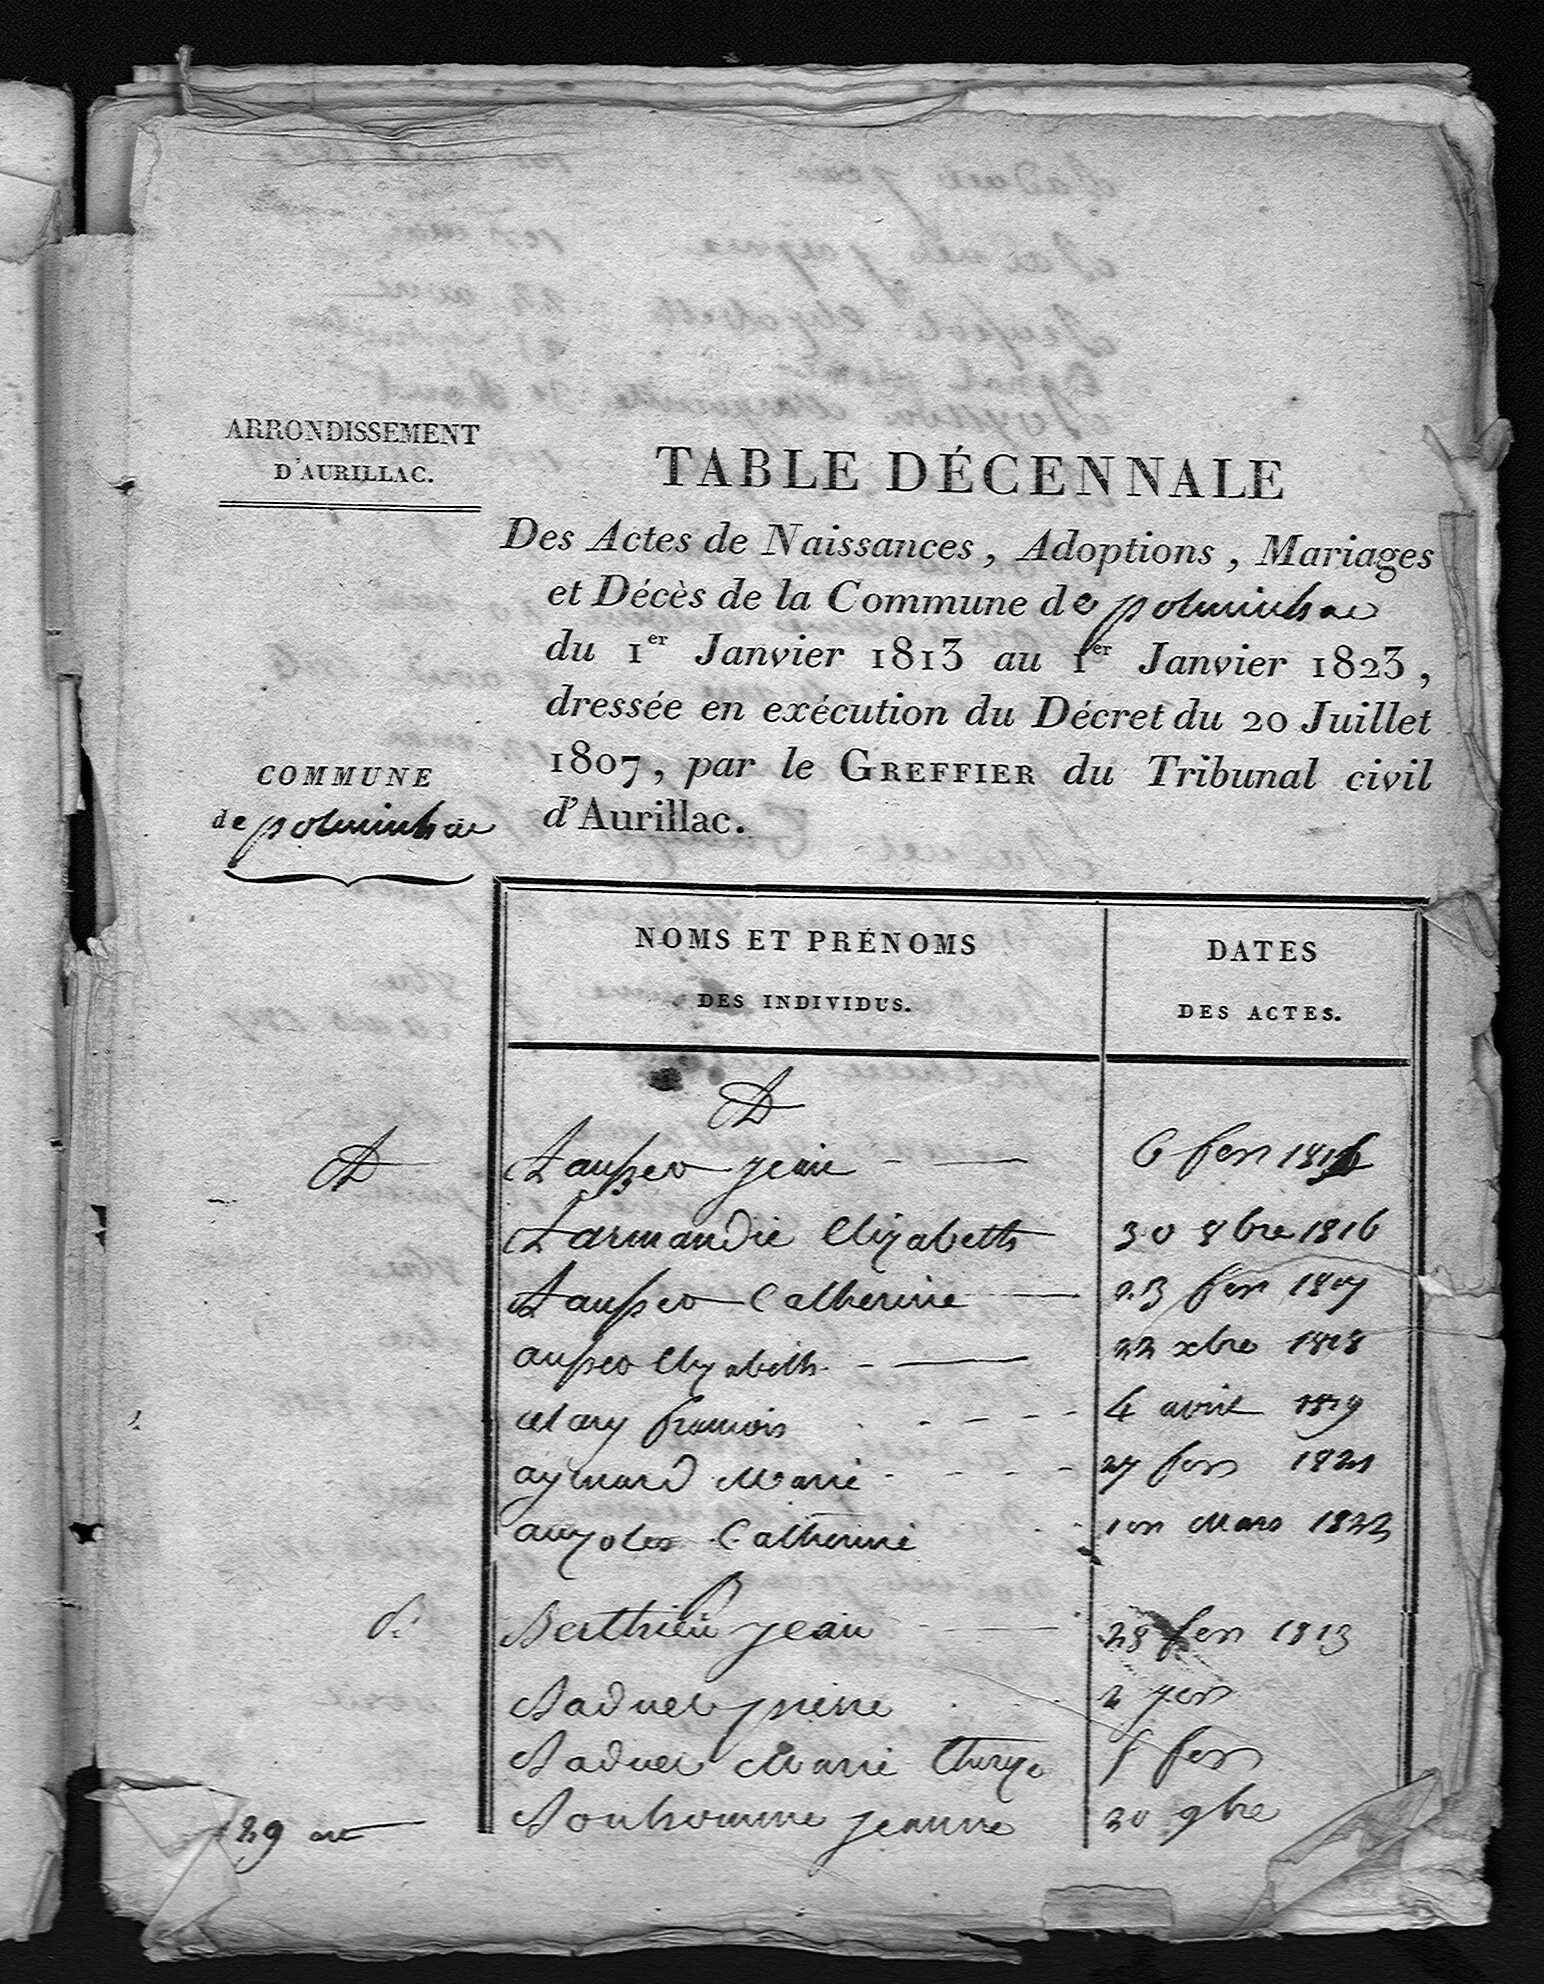 ARRONDISSEMENT
D'AURILLAC.
TABLE DÉCENNALE
Des Actes de Naissances, Adoptions, Mariages
et Décès de la Commune de polminhac
du 1er Janvier 1813 au 1er Janvier 1823,
dressée en exécution du Décret du 20 Juillet
1807, par le GREFFIER du Tribunal civil
d'Aurillac.
COMMUNE
de polminhac
NOMS ET PRÉNOMS
DES INDIVIDUS.
DATES
DES ACTES.
A
A
jean 6 fer
Larmandie Elizabeth 30 8bre 1816
Catherine 23 fer 1817
Elizabeth 22 xbre 1818
alary francois 4 avril 1819
aymard Marie 27 fer 1821
Catherine 1er Mars 1822
B
Berthieu jean 28 fer 1813
Baduel pierre 2
Baduel Marie therese fer
Bonhomme jeanne 20 9bre
29